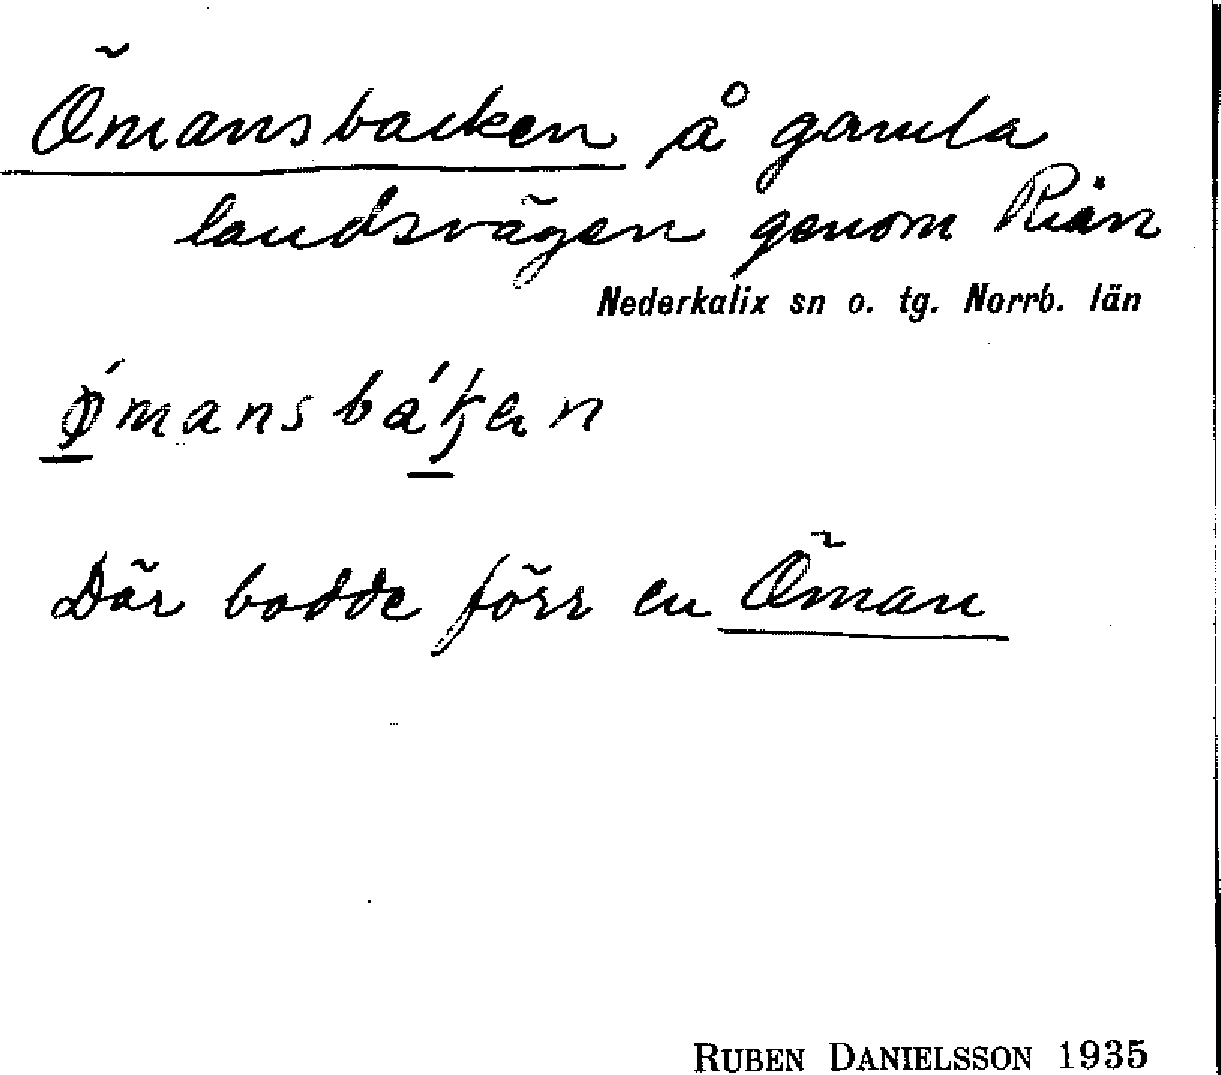 Ömansbacken å gamla
landsvägen genom Rian
Nederkalix sn o. tg. Norrb. län
Där bodde förr en Öman
RUBEN DANIELSSON 1935